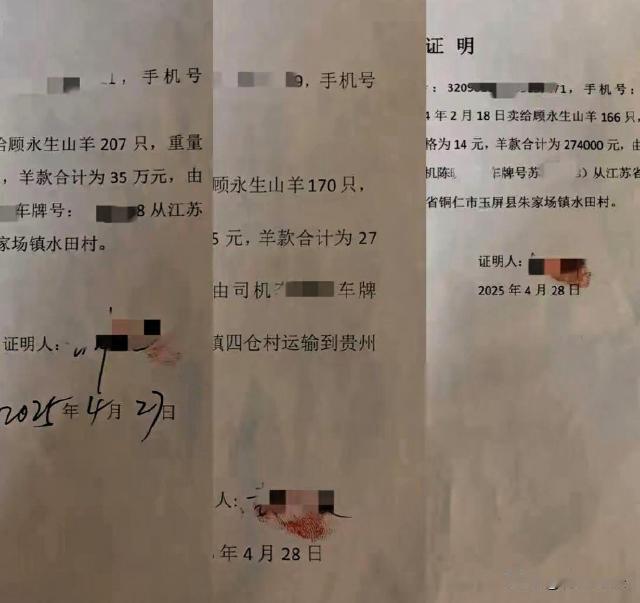 1，手机号
给顾永生山羊 207 只，重量
，羊款合计为 35 万元，由
车牌号： 8 从江苏
家场镇水田村。
证明人：
2025年 4月 27日
9，手机号
顾永生山羊 170 只，
5 元，羊款合计为 27
由司机 车牌
镇四仓村运输到贵州
人：
年 4 月 28 日
证 明
：3209 71，手机号：
4 年 2 月 18 日卖给顾永生山羊 166 只，
格为 14 元，羊款合计为 274000 元，由
机陈 车牌号苏 ）从江苏省
省铜仁市玉屏县朱家场镇水田村。
证明人：
2025 年 4 月 28 日